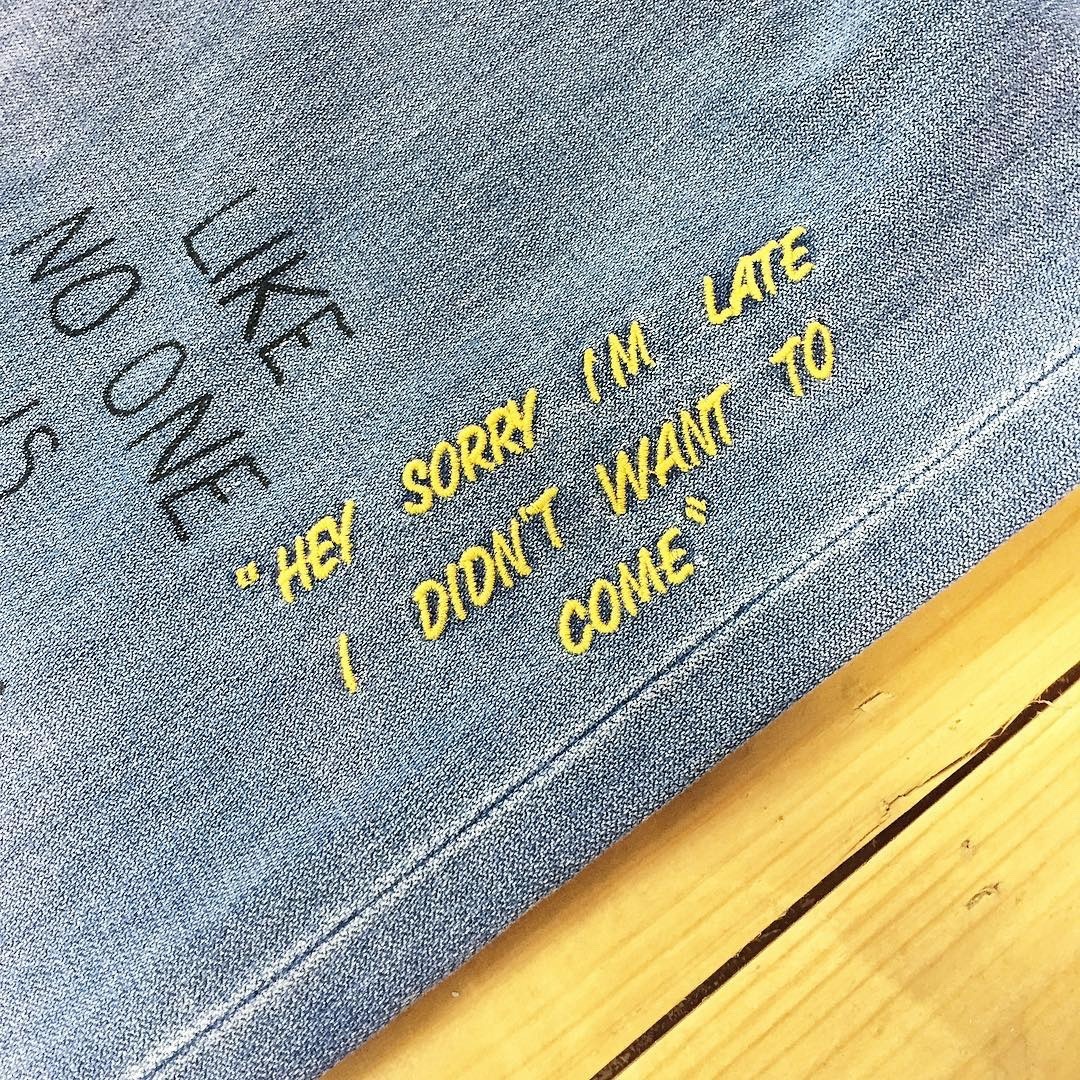 LIKE
NO ONE
IS
"HEY SORRY IM LATE
I DIDN'T WANT TO
COME"